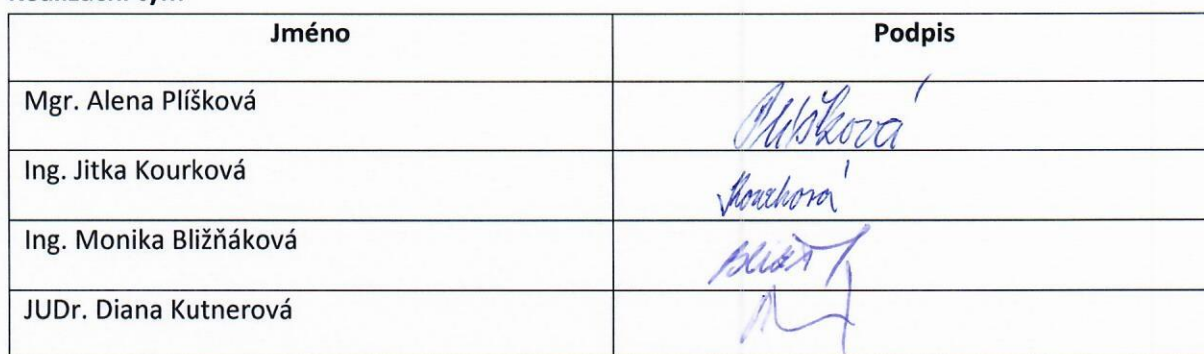 Jméno Podpis
Mgr. Alena Plíšková Plíšková
Ing. Jitka Kourková Kourková
Ing. Monika Bližňáková
JUDr. Diana Kutnerová